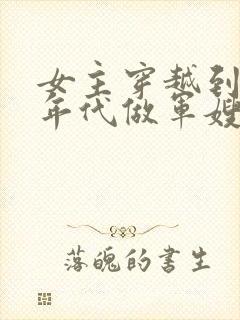 女主穿越到
年代做军嫂
落魄的书生